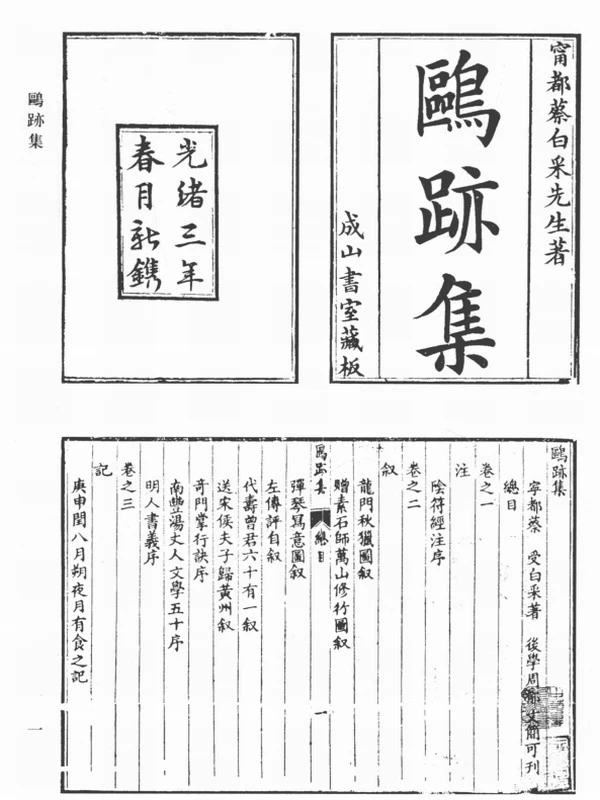 鷗跡集
甯都蔡白采先生著
鷗跡集
成山書室藏板
光緒三年
春月新鐫
鷗跡集
寧都蔡 受白采著 後學周 文簡可刊
總目
卷之一
注
陰符經注序
卷之二
叙
龍門秋獵圖叙
贈素石師萬山修竹圖叙
鷗跡集 總目 一
彈琴寫意圖叙
左傳評自叙
代壽曾君六十有一叙
送宋侯夫子歸黃州叙
奇門掌行訣序
南豐湯丈人文學五十序
明人書義序
卷之三
記
庚申閏八月朔夜月有食之記
一